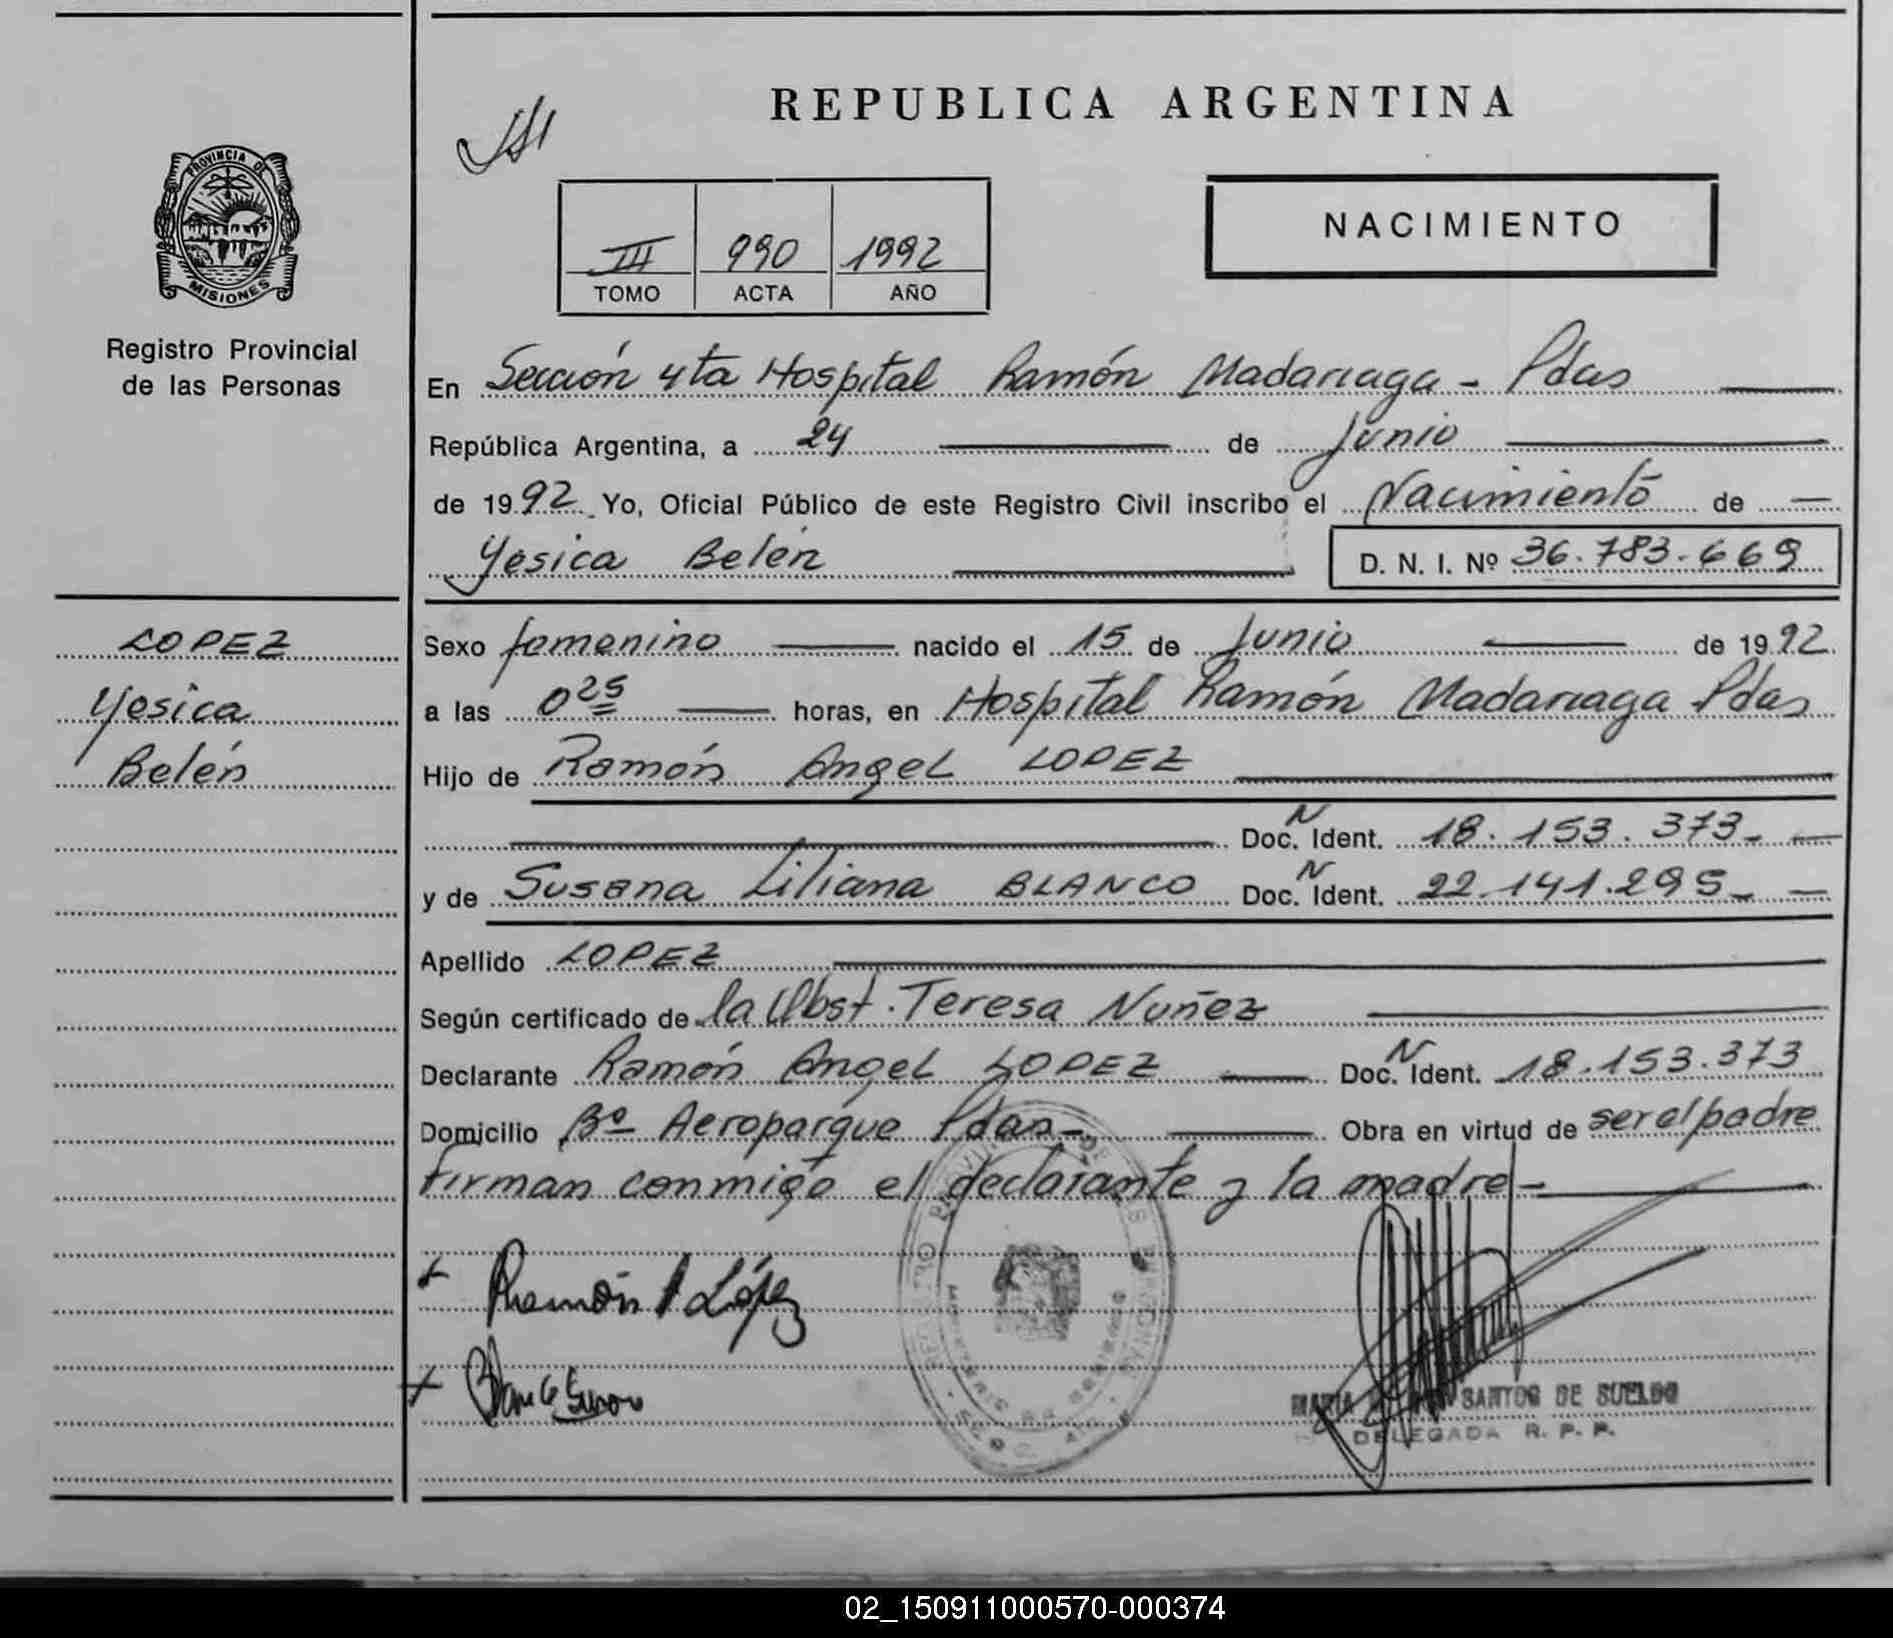 REPUBLICA ARGENTINA
PROVINCIA DE
MISIONES
Registro Provincial
de las Personas
III 990 1992
TOMO ACTA AÑO
NACIMIENTO
En Sección 4ta Hospital Ramón Madariaga - Pdas
República Argentina, a 24 de Junio
de 1992 Yo, Oficial Público de este Registro Civil inscribo el Nacimiento de
Yesica Belén D. N. I. Nº 36.783.669
LOPEZ
Yesica
Belén
Sexo femenino nacido el 15 de Junio de 1992
a las 0 25 horas, en Hospital Ramón Madariaga Pdas
Hijo de Ramón Angel LOPEZ
Doc. N Ident. 18.153.373-
y de Susana Liliana BLANCO Doc. N Ident. 22.141.295-
Apellido LOPEZ
Según certificado de la Obst. Teresa Nuñez
Declarante Ramón Angel LOPEZ Doc. N Ident. 18.153.373
Domicilio Bº Aeroparque Pdas- Obra en virtud de ser el padre
Firman conmigo el declarante y la madre-
+ Ramón A López
+ Blanco Susana
SANTOS DE SUELDO
DELEGADA R. P. P.
02_150911000570-000374